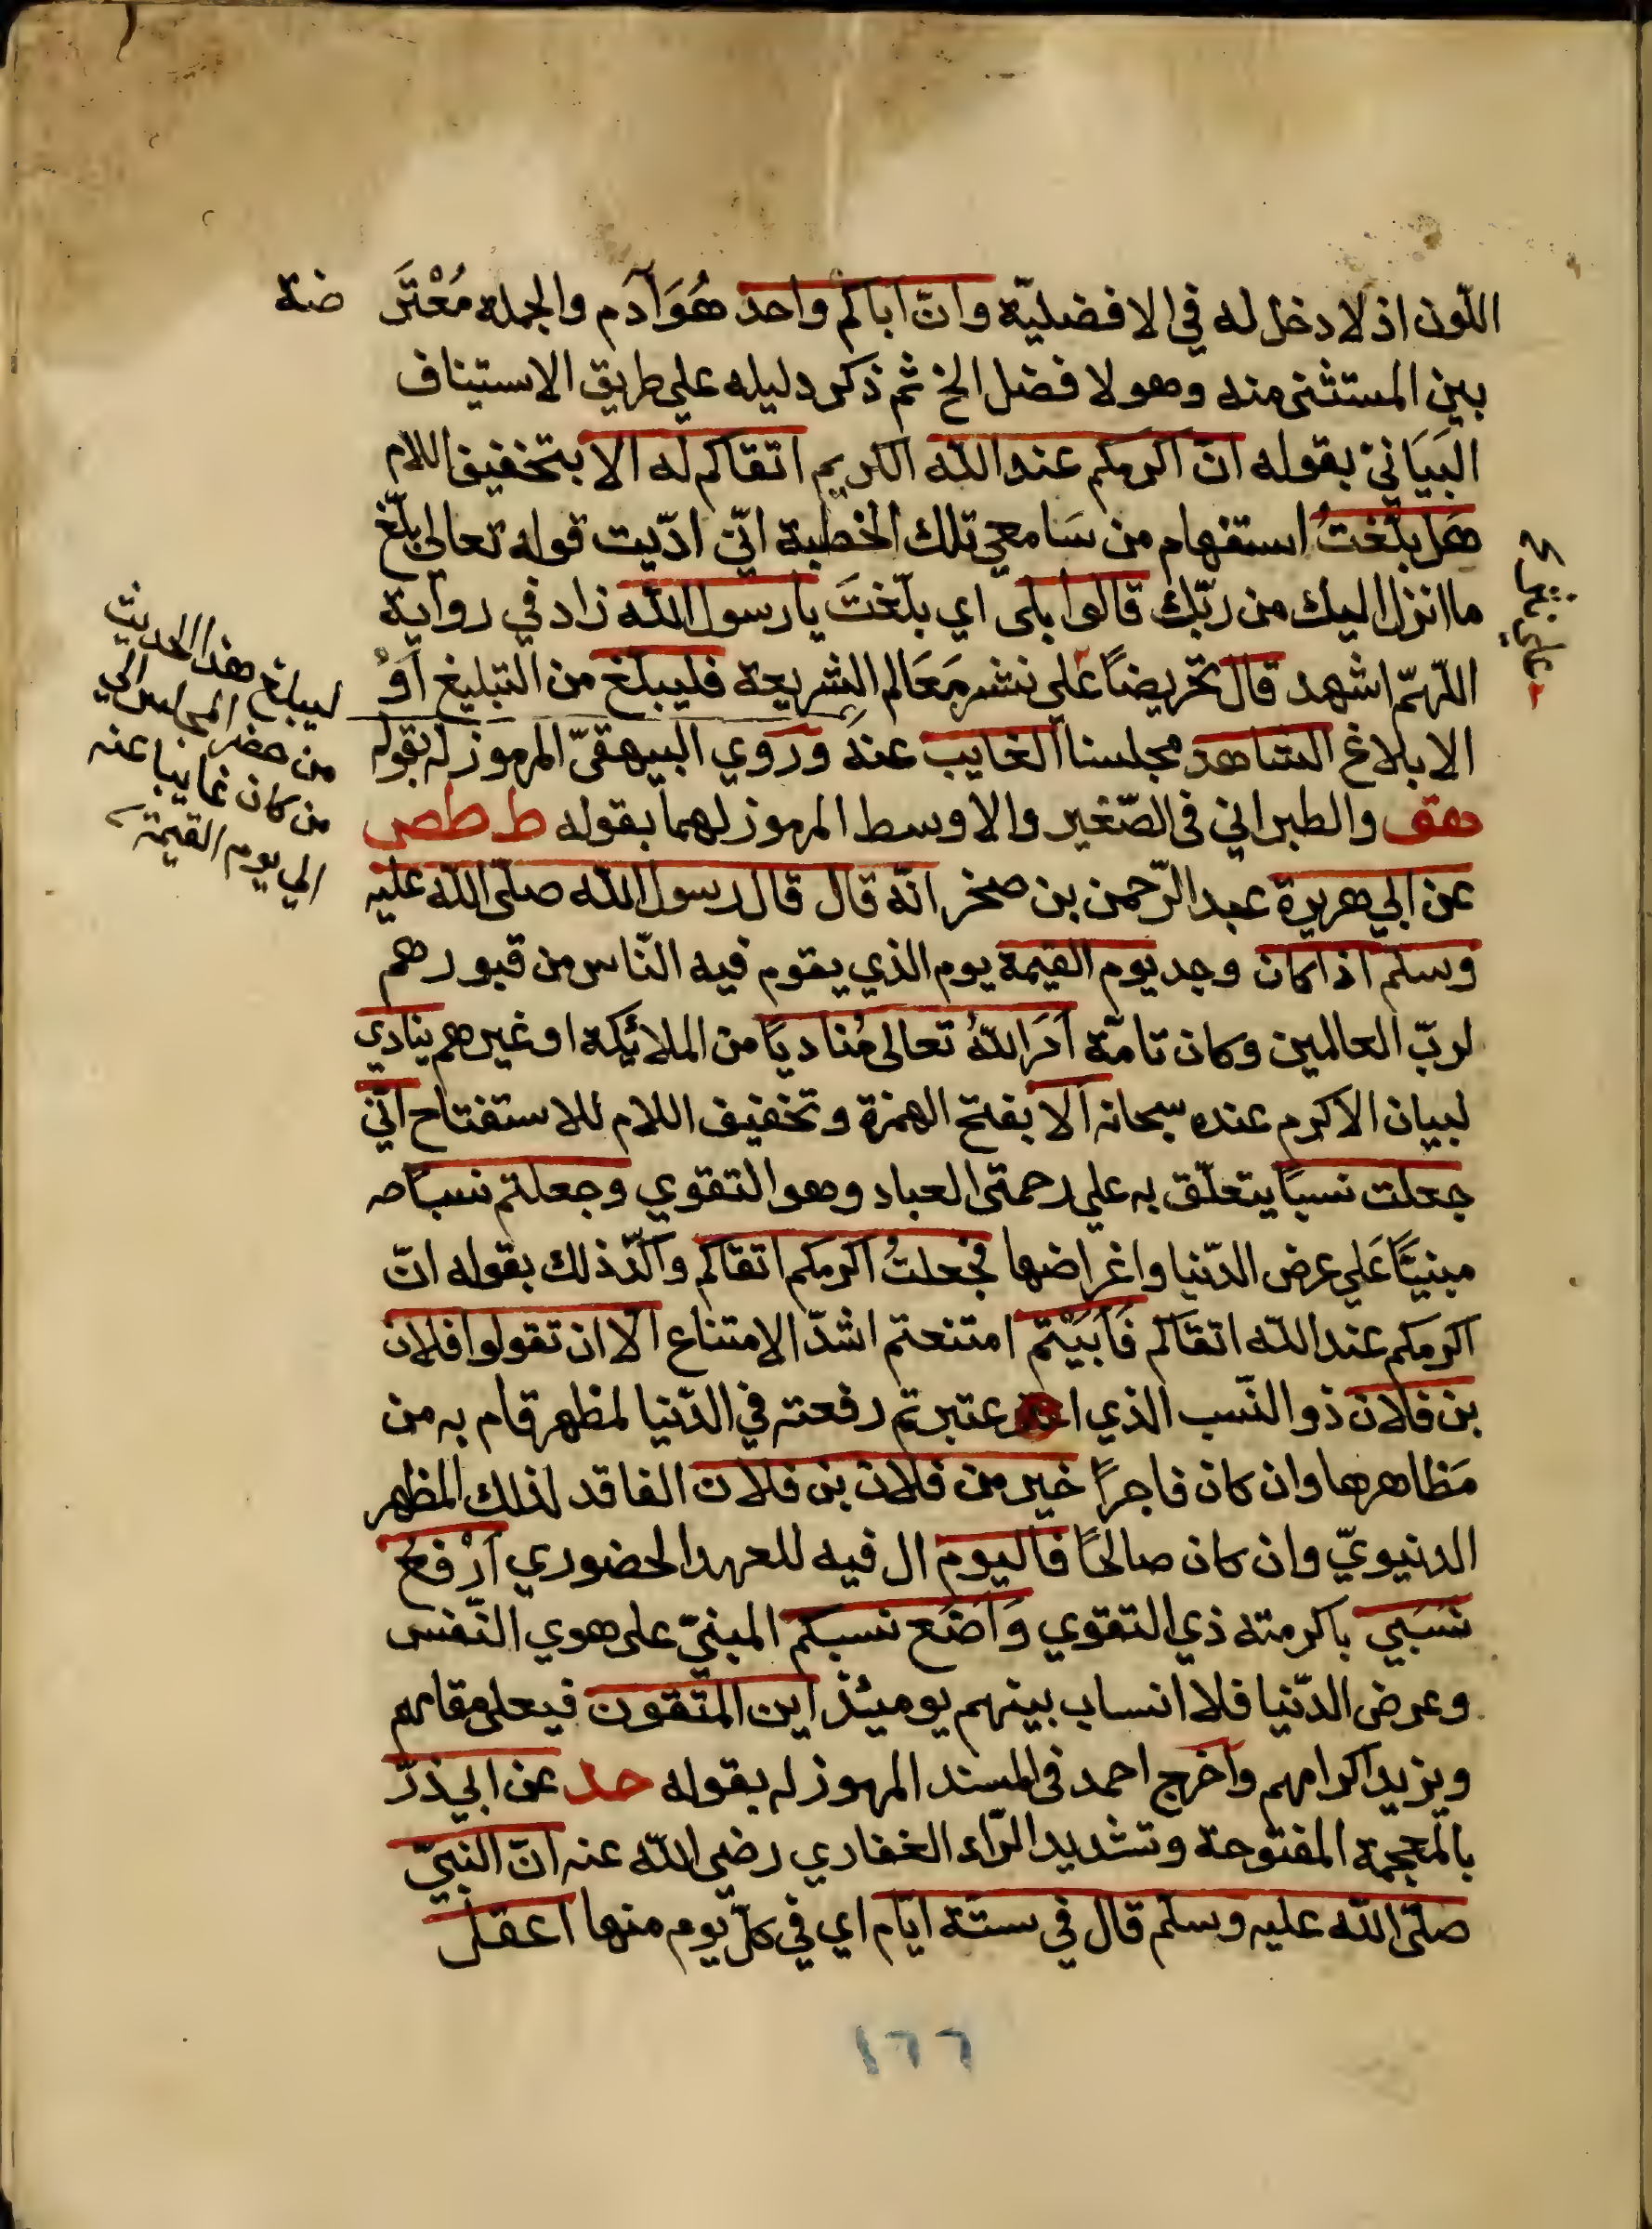 اللّون اذ لا دخل له في الافضليّة وانّ اباكم واحد هُوَ آدم والجملة مُعْتَرَ ضة
بين المستثنى منه وهو لا فضل الخ ثم ذكر دليله علي طريق الاستيناف
البَيَانيّ بقوله انّ اكرمكم عند الله الكريم اتقاكم له الا بتخفيف اللام
هَل بلّغتُ استفهام من سَامعي تلك الخطبة انّي ادّيت قوله تعالى بلّغ
ما انزل اليك من ربّك قالوا بلى اي بلّغتَ يا رسول الله زاد في رواية
اللّهمّ اشهد قال تحريضاً عَلي نشر مَعَالم الشريعة فليبلغ من التبليغ اَوْ
الابلاغ الشاهد مجلسنا الغايب عنهُ وروي البيهقيّ المرموز له بقوله
هق والطبراني في الصّغير والاوسط المرموز لهما بقوله ط طص
عن ابي هريرة عبد الرّحمن بن صخر انّه قال قال رسول الله صلّى الله عليه
وسلّم اذا كان وجد يوم القيمة يوم الذي يقوم فيه النّاس من قبورهم
لربّ العالمين وكان تامّة اَمَرَ اللهُ تعالى مُناديًا من الملائكة او غيرهم ينادي
لبيان الاكرم عنده سبحانه اَلا بفتح الهمزة وتخفيف اللام للاستفتاح انّي
جعلت نسبًا يتعلّق به علي رحمتي العباد وهو التقوي وجعلتم نسبًا
مبنيًّا عَلي عرض الدّنيا واغراضها فجعلتُ اكرمكم اتقاكم واكّد ذلك بقوله انّ
اكرمكم عند الله اتقاكم فَاَبَيْتم امتنعتم اشدّ الامتناع الا ان تقولوا فلان
بن فلان ذو النّسب الذي اعتبرتم رفعته في الدّنيا لمظهر قام به من
مَظاهرها وان كان فاجرًا خير من فلان بن فلان الفاقد لذلك المظهر
الدنيويّ وان كان صالحًا فاليوم ال فيه للعهد الحضوري اَرْفعُ
نَسَبي باكرمته ذي التقوي وَاضع نسبكم المبنيّ على هوي النّفس
وعرض الدّنيا فلا انساب بينهم يومئذ اين المتقون فيعلى مقامهم
ويزيد اكرامهم واخرج احمد في المسند المرموز له بقوله حد عن ابي ذرّ
بالمعجمة المفتوحة وتشديد الرّاء الغفاري رضي الله عنه انّ النبيّ
صلّى الله عليه وسلّم قال في ستّة ايّام اي في كلّ يوم منها اعقل
ليبلغ هذا الحديث
من حضر المجلس الي
من كان غايبا عنه
الي يوم القيمة
١٦٦